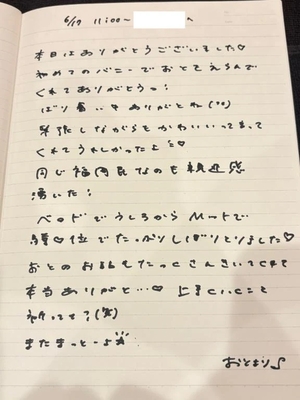 6/17 11:00~ へ
本日はありがとうございました♡
初めてのバニーでおとをえらんで
くれてありがとうっ!
ばり奮いもありがとね(??)
緊張しながらもかわいいって言って
くれてうれしかったよ
同じ福岡民なのも親近感
湧いた!
ベッドでうしろからMットで
騎♡位でたっぷりしぼりとりました♡
おとのお話もたっくさんきいてくれて
本当ありがと…♡ 上手くいくこと
祈ってる?(笑)
またまっとーよ
おとより